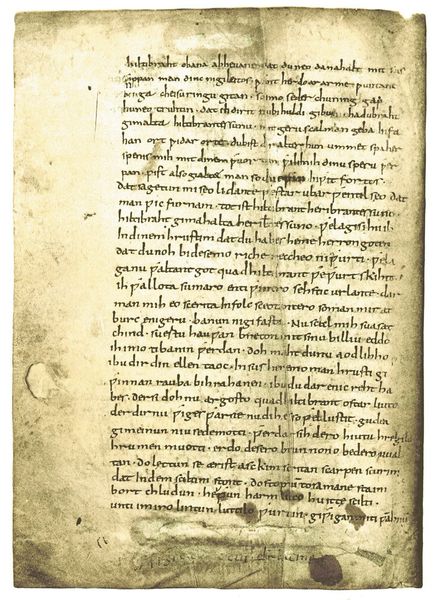 hiltibraht obana abheuane dat du neo danahalt mit sus
sippan man dinc ni gileitos ƿant her do ar arme ƿuntane
bouga cheisuringu gitan · so imo seder chuning gap
huneo truhtin · dat ih dir it nu bi huldi gibu · hadubraht
gimalta hiltibrantes sunu · mit geru scal man geba infa
han ort ƿidar orte · du bist dir alter hun ummet spaher
spenis mih mit dinem ƿortun ƿili mih dinu speru ƿer
pan · pist also gialtet man so du ewin inƿit fortos
dat sagetun mi seolidante ƿestar ubar ƿentilseo dat
man ƿic furnam · tot ist hiltibrant heribrantes suno ·
hiltibraht gimahalta heribtes suno · ƿela gisihu ih
in dinem hrustim dat du habes heme herron goten
dat du noh bi desemo riche reccheo ni ƿurti · ƿela
ga nu ƿaltant got quad hiltibrant ƿeƿurt skihit ·
ih ƿallota sumaro enti ƿintro sehstic ur lante · dar
man mih eo scerita in folc sceotantero so man mir at
burc enigeru · banun ni gifasta · nu scal mih suasat
chind · suertu hauƿan breton mit sinu billiu eddo
ih imo ti banin ƿerdan · doh maht du nu aodlihho
ibu dir din ellen taoc · in sus heremo man hrusti gi
ƿinnan rauba birahanen · ibu du dar enic reht ha
bes · der si doh nu argosto quad hiltibrant ostarliuto
der dir nu ƿiges ƿarne nu dih es so ƿel lustit · gudea
gimeinun niuse de motti · ƿerdar sih dero hiutu hregilo
hrumen muotti · erdo desero brunnono bedero uual
tan · do lettun se ærist asckim scritan scarpen scurim
dat in dem sciltim stont · do stoptun tosamane staim
bort chludun · heƿun harmlicco huitte scilti ·
unti im iro lintun luttilo ƿurtun · giƿigan miti ƿabnum